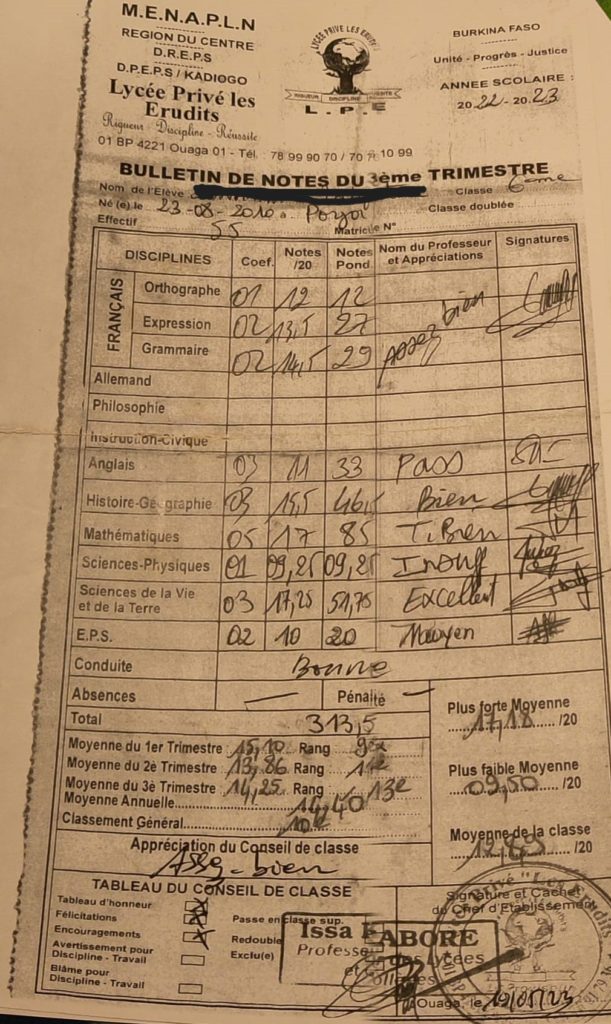 M.E.N.A.P.L.N
REGION DU CENTRE
D.R.E.P.S
D.P.E.P.S / KADIOGO
Lycée Privé les
Erudits
Rigueur - Discipline - Réussite
01 BP 4221 Ouaga 01 - Tél : 78 99 90 70 / 70 10 99
LYCEE PRIVE LES ERUDITS
RIGUEUR DISCIPLINE REUSSITE
L.P.E
BURKINA FASO
Unité - Progrès - Justice
ANNEE SCOLAIRE :
2022 - 2023
BULLETIN DE NOTES DU 3ème TRIMESTRE
Nom de l'Elève Classe 6ème
Né (e) le 23-08-2010 à Classe doublée
Effectif 55 Matricule N°
DISCIPLINES Coef. Notes /20 Notes Pond. Nom du Professeur et Appréciations Signatures
FRANÇAIS
Orthographe 01 12 12
Expression 02 13,5 27
Grammaire 02 14,5 29 Assez bien
Allemand
Philosophie
Instruction-Civique
Anglais 03 11 33 Pass
Histoire-Géographie 03 15,5 46,5 Bien
Mathématiques 05 17 85 T.Bien
Sciences-Physiques 01 09,25 09,25 Insuff
Sciences de la Vie et de la Terre 03 17,25 51,75 Excellent
E.P.S. 02 10 20 Moyen
Conduite Bonne
Absences — Pénalité —
Total 313,5
Moyenne du 1er Trimestre 15,10 Rang 9e
Moyenne du 2è Trimestre 13,86 Rang
Moyenne du 3è Trimestre 14,25 Rang 13e
Moyenne Annuelle 14,40
Classement Général 10e
Plus forte Moyenne
17,18 /20
Plus faible Moyenne
09,50 /20
Moyenne de la classe
12,89 /20
Appréciation du Conseil de classe
Assez-bien
TABLEAU DU CONSEIL DE CLASSE
Tableau d'honneur
Félicitations Passe en classe sup.
Encouragements Redouble
Avertissement pour Discipline - Travail Exclu(e)
Blâme pour
Discipline - Travail
Signature et Cachet
du Chef d'Etablissement
Issa KABORE
Professeur des Lycées
et Collèges
Ouaga, le 19/05/23